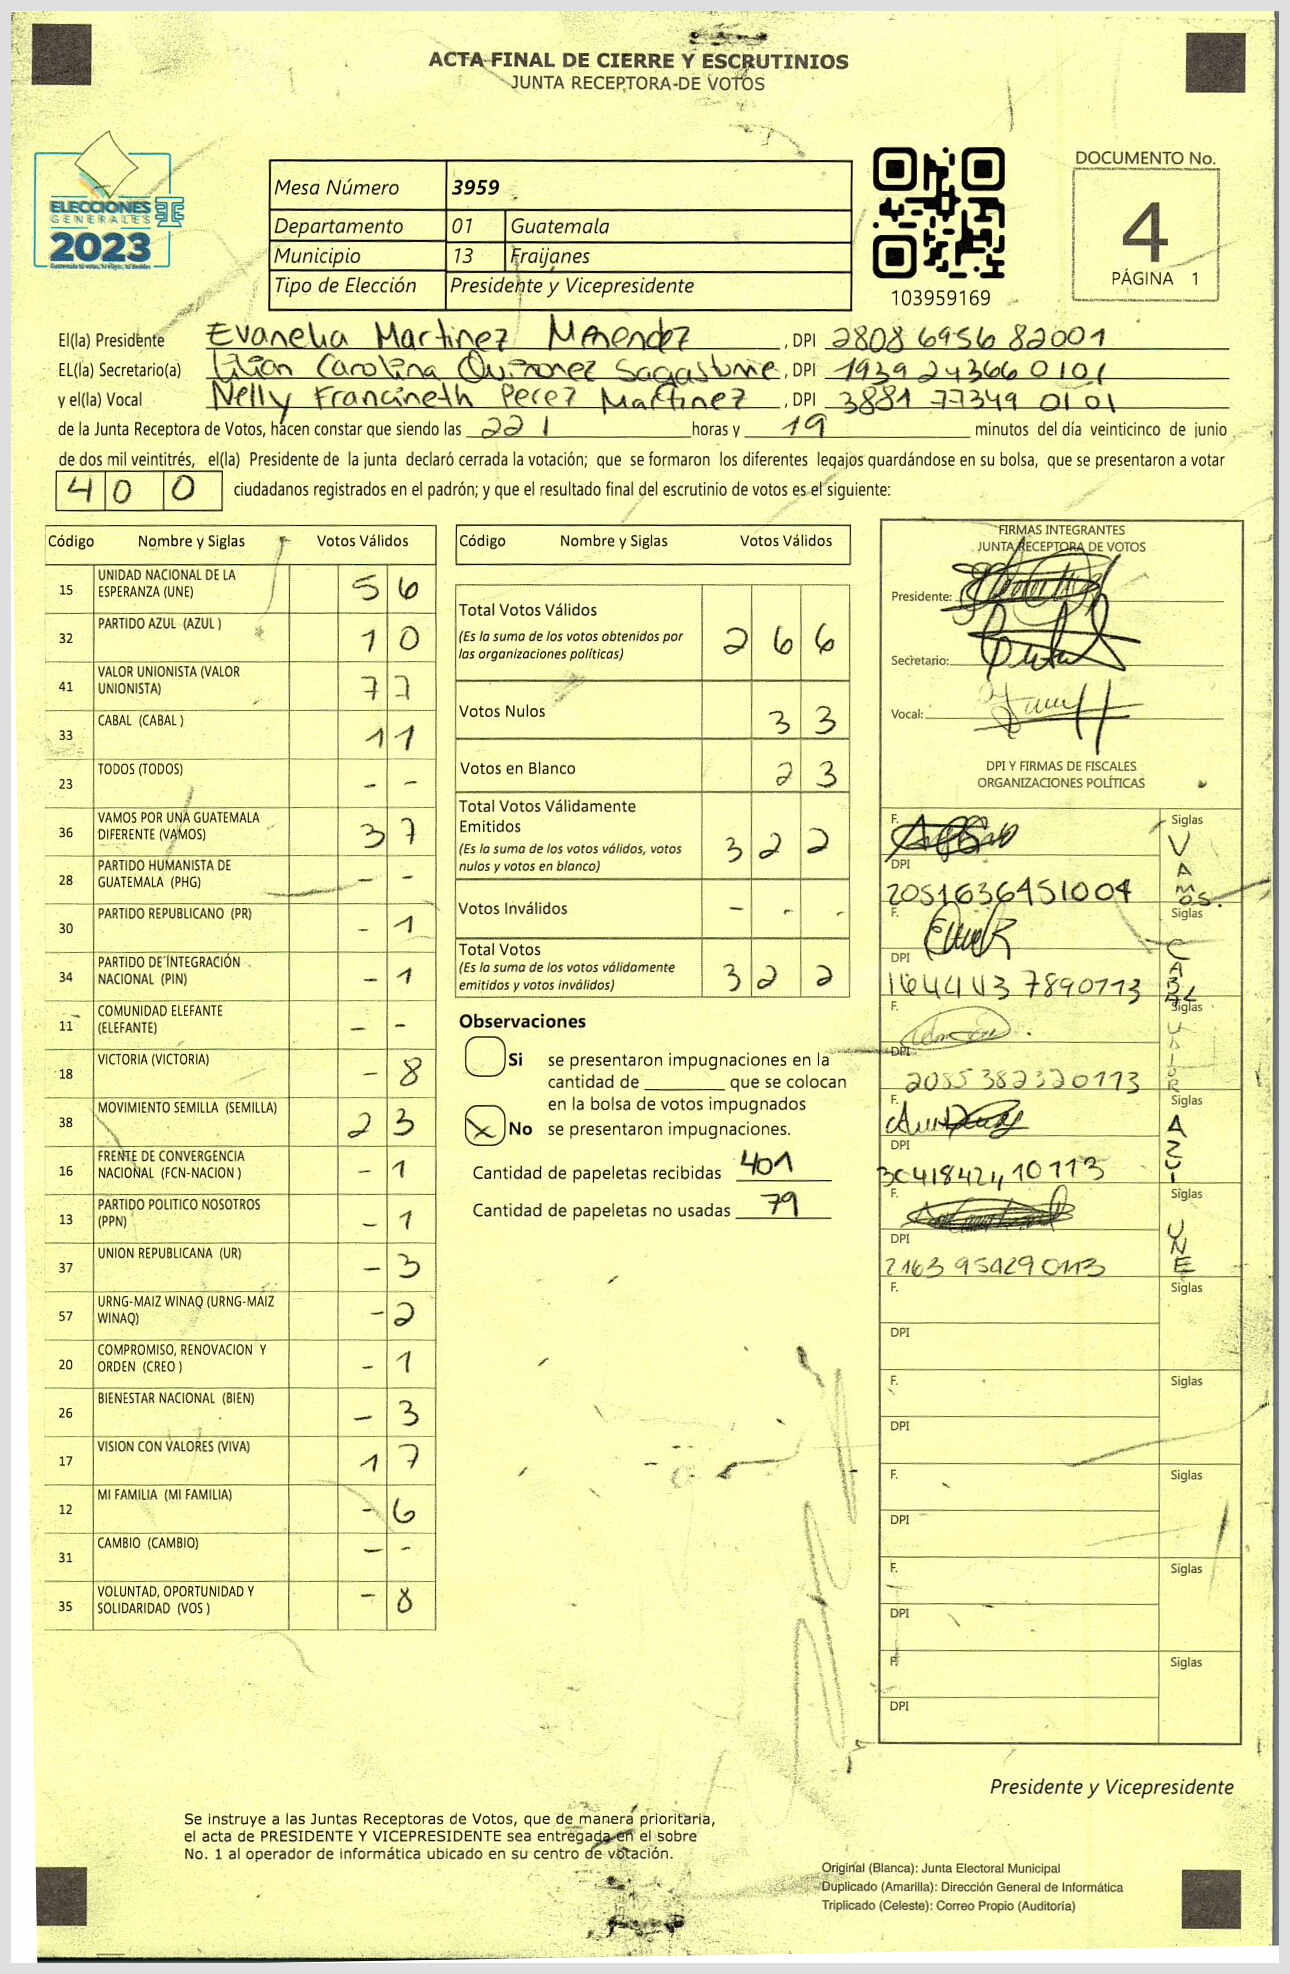 ACTA FINAL DE CIERRE Y ESCRUTINIOS
JUNTA RECEPTORA DE VOTOS
ELECCIONES
GENERALES
2023
Mesa Número 3959
Departamento 01 Guatemala
Municipio 13 Fraijanes
Tipo de Elección Presidente y Vicepresidente
103959169
DOCUMENTO No.
4
PÁGINA 1
El(la) Presidente Evanelia Martinez Menendez, DPI 2808 6956 82001
EL(la) Secretario(a) Lilian Carolina Quiñonez Sagastume, DPI 1939 24366 0101
y el(la) Vocal Nelly Francineth Perez Martinez, DPI 3881 77349 0101
de la Junta Receptora de Votos, hacen constar que siendo las 22 horas y 19 minutos del día veinticinco de junio
de dos mil veintitrés, el(la) Presidente de la junta declaró cerrada la votación; que se formaron los diferentes legajos guardándose en su bolsa, que se presentaron a votar
400 ciudadanos registrados en el padrón; y que el resultado final del escrutinio de votos es el siguiente:
Código Nombre y Siglas Votos Válidos
15 UNIDAD NACIONAL DE LA ESPERANZA (UNE) 56
32 PARTIDO AZUL (AZUL ) 10
41 VALOR UNIONISTA (VALOR UNIONISTA) 77
33 CABAL (CABAL ) 11
23 TODOS (TODOS) - -
36 VAMOS POR UNA GUATEMALA DIFERENTE (VAMOS) 37
28 PARTIDO HUMANISTA DE GUATEMALA (PHG) - -
30 PARTIDO REPUBLICANO (PR) - 1
34 PARTIDO DE INTEGRACIÓN NACIONAL (PIN) - 1
11 COMUNIDAD ELEFANTE (ELEFANTE) - -
18 VICTORIA (VICTORIA) - 8
38 MOVIMIENTO SEMILLA (SEMILLA) 23
16 FRENTE DE CONVERGENCIA NACIONAL (FCN-NACION ) - 1
13 PARTIDO POLITICO NOSOTROS (PPN) - 1
37 UNION REPUBLICANA (UR) - 3
57 URNG-MAIZ WINAQ (URNG-MAIZ WINAQ) - 2
20 COMPROMISO, RENOVACION Y ORDEN (CREO ) - 1
26 BIENESTAR NACIONAL (BIEN) - 3
17 VISION CON VALORES (VIVA) 17
12 MI FAMILIA (MI FAMILIA) - 6
31 CAMBIO (CAMBIO) - -
35 VOLUNTAD, OPORTUNIDAD Y SOLIDARIDAD (VOS ) - 8
Código Nombre y Siglas Votos Válidos
Total Votos Válidos 266
(Es la suma de los votos obtenidos por
las organizaciones políticas)
Votos Nulos 33
Votos en Blanco 23
Total Votos Válidamente
Emitidos 322
(Es la suma de los votos válidos, votos
nulos y votos en blanco)
Votos Inválidos - - -
Total Votos 322
(Es la suma de los votos válidamente
emitidos y votos inválidos)
Observaciones
Si se presentaron impugnaciones en la
cantidad de ________ que se colocan
en la bolsa de votos impugnados
X No se presentaron impugnaciones.
Cantidad de papeletas recibidas 401
Cantidad de papeletas no usadas 79
FIRMAS INTEGRANTES
JUNTA RECEPTORA DE VOTOS
Presidente:
Secretario:
Vocal:
DPI Y FIRMAS DE FISCALES
ORGANIZACIONES POLÍTICAS
F. Siglas VAMOS.
DPI 2051636451004
F. Siglas CABAL
DPI 1644437890113
F. Siglas
DPI 2085382320113
F. Siglas AZUL
DPI 3041842410113
F. Siglas UNE
DPI 2163954290113
F. Siglas
DPI
F. Siglas
DPI
F. Siglas
DPI
F. Siglas
DPI
F. Siglas
DPI
Presidente y Vicepresidente
Se instruye a las Juntas Receptoras de Votos, que de manera prioritaria,
el acta de PRESIDENTE Y VICEPRESIDENTE sea entregada en el sobre
No. 1 al operador de informática ubicado en su centro de votación.
Original (Blanca): Junta Electoral Municipal
Duplicado (Amarilla): Dirección General de Informática
Triplicado (Celeste): Correo Propio (Auditoría)